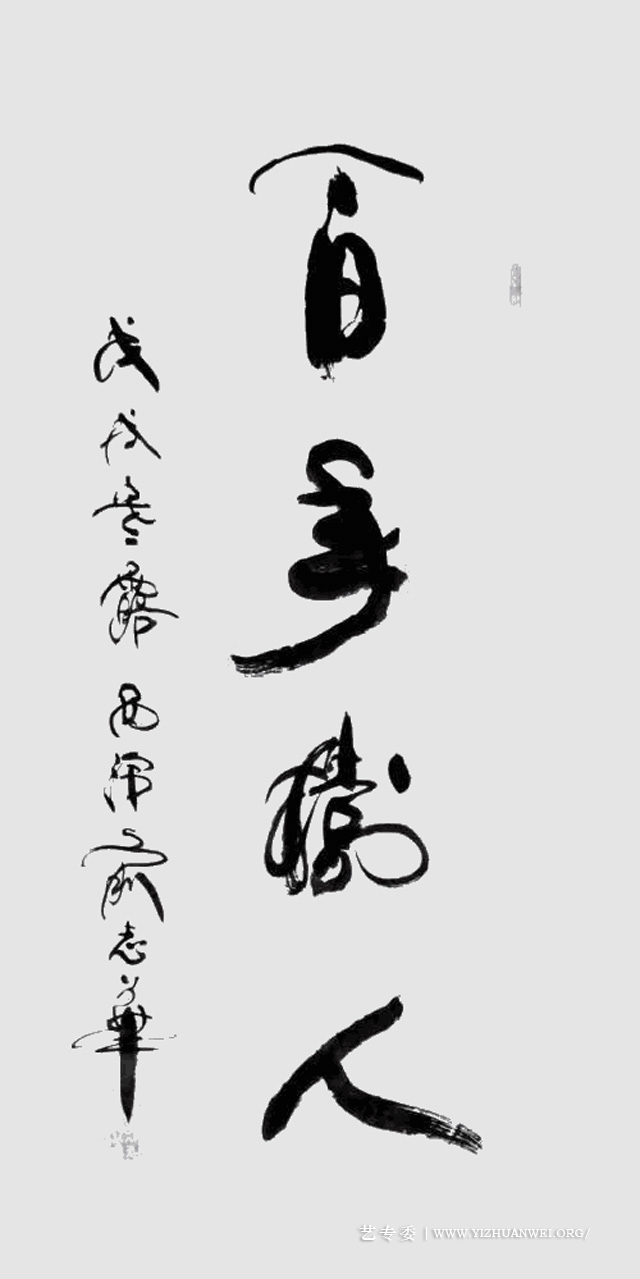 百年樹人
戊戌寒露 西泠 俞志華
艺专委 | WWW.YIZHUANWEI.ORG/